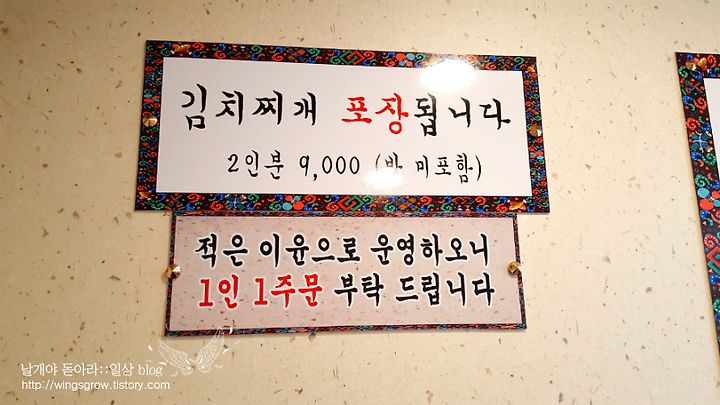 김치찌개 포장됩니다
2인분 9,000 (밥 미포함)
적은 이윤으로 운영하오니
1인 1주문 부탁 드립니다
날개야 돋아라::일상 blog
http://wingsgrow.tistory.com